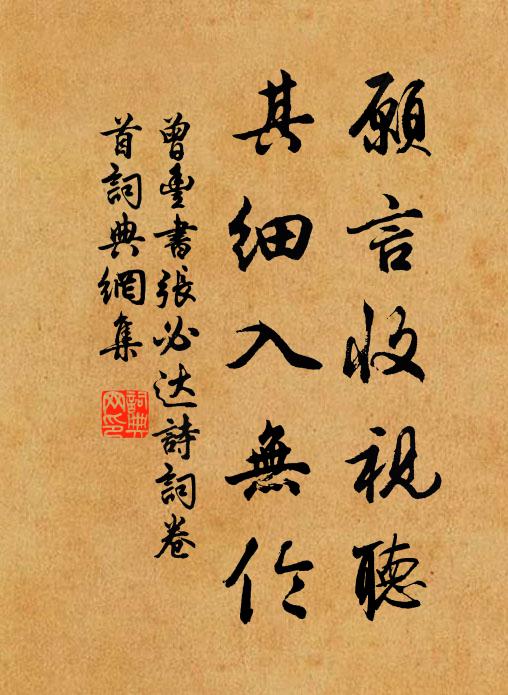 願言收視聽
其細入無伦
曾豐書張必达詩詞卷
首詞典網集
詞典
网印